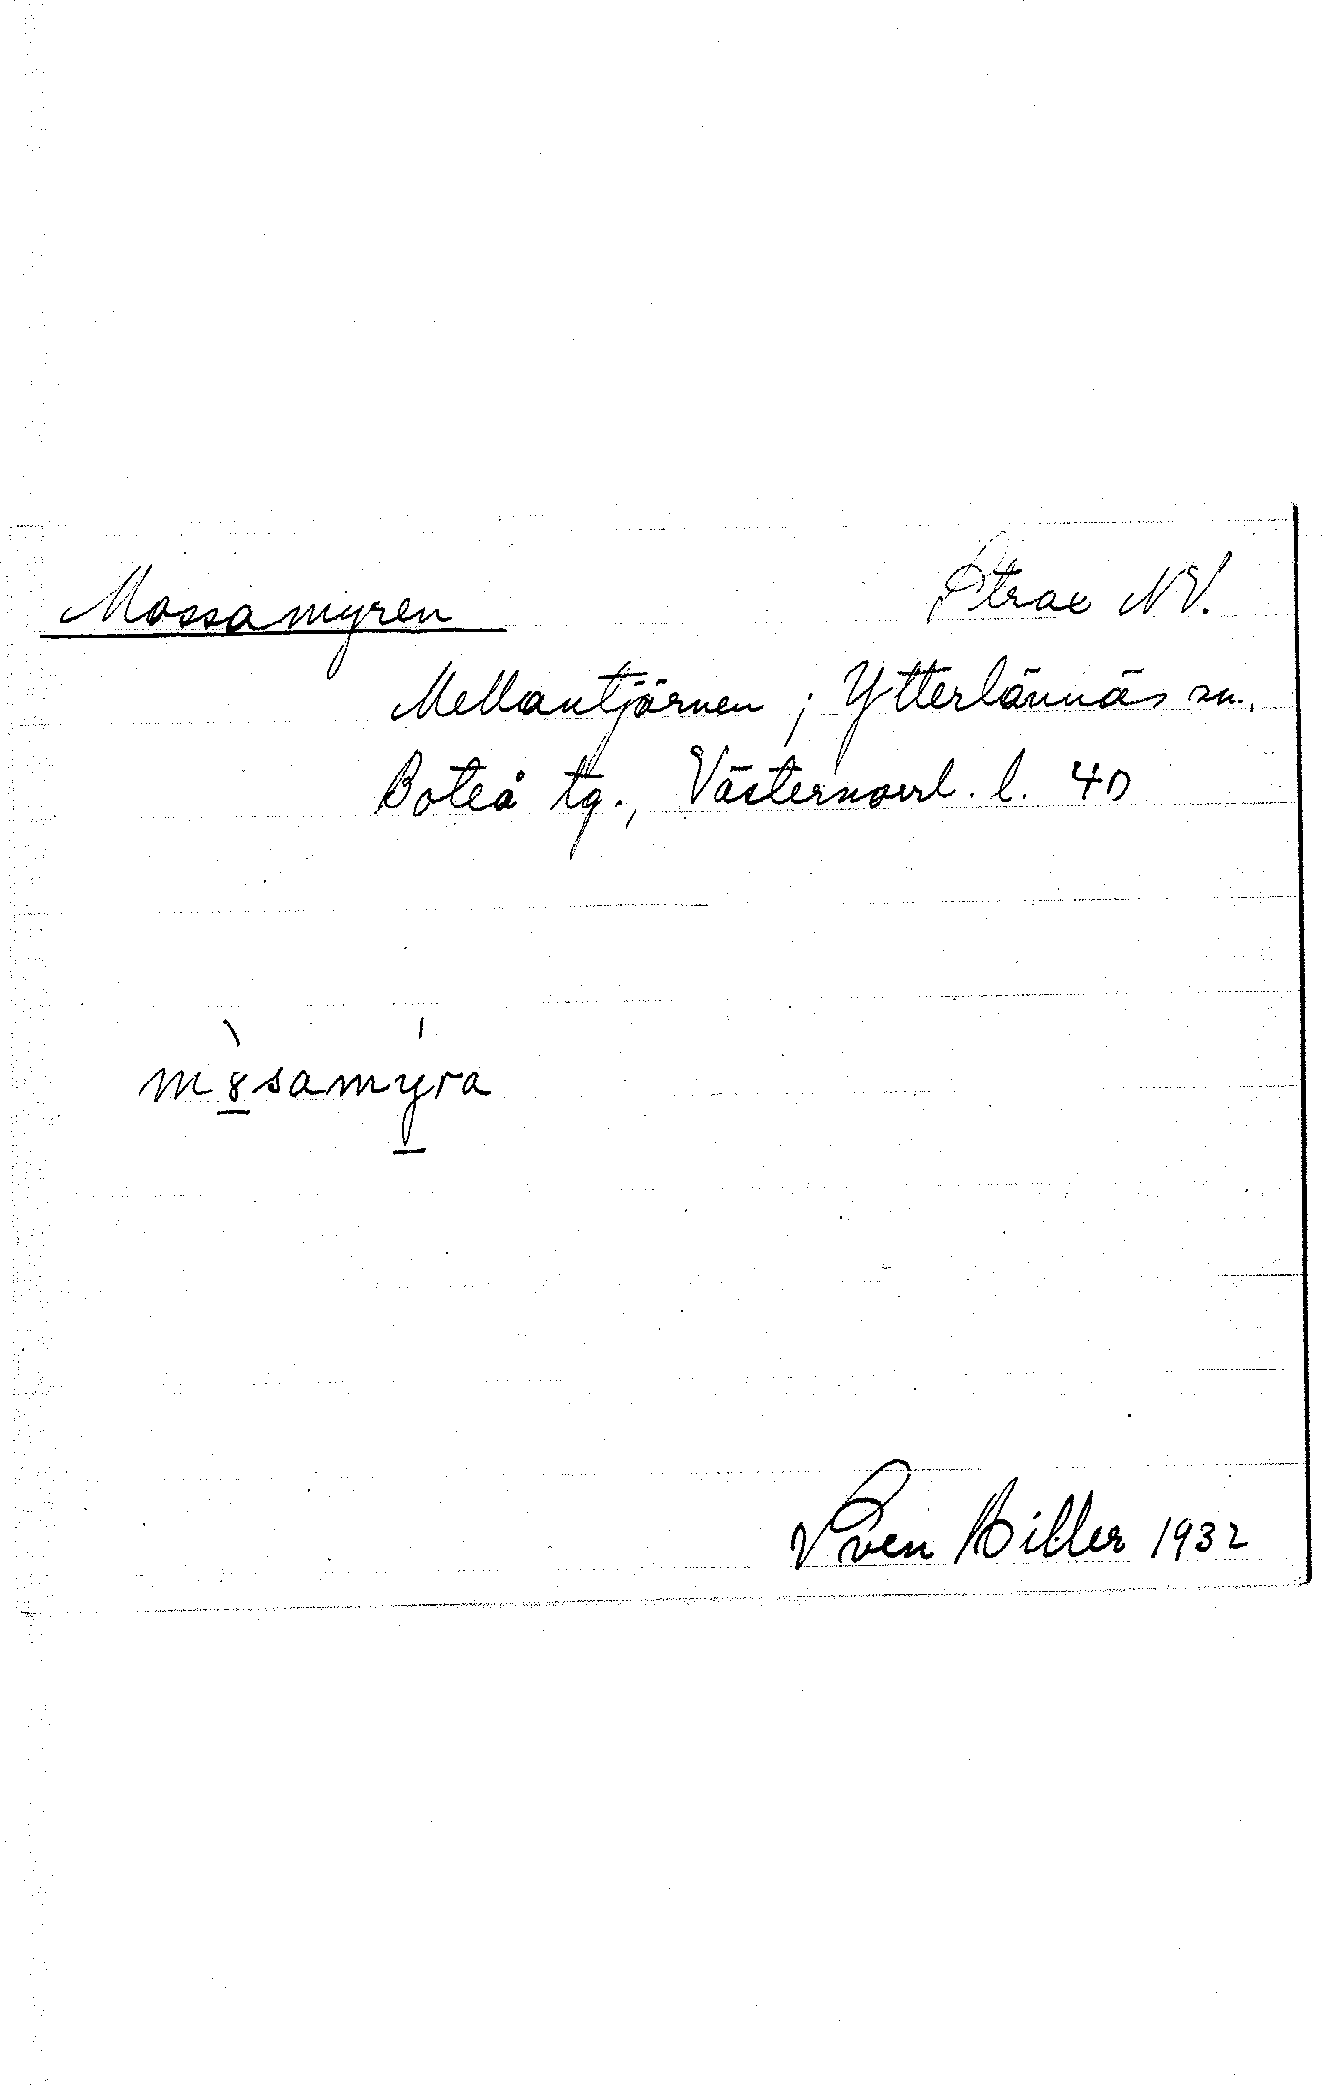 Mossamyren Strax NV.
Mellantjärnen ; Ytterlännäs sn.,
Boteå tg., Västernorrl. l. 40
m8̲̀samý̲ra
Sven Hiller 1932